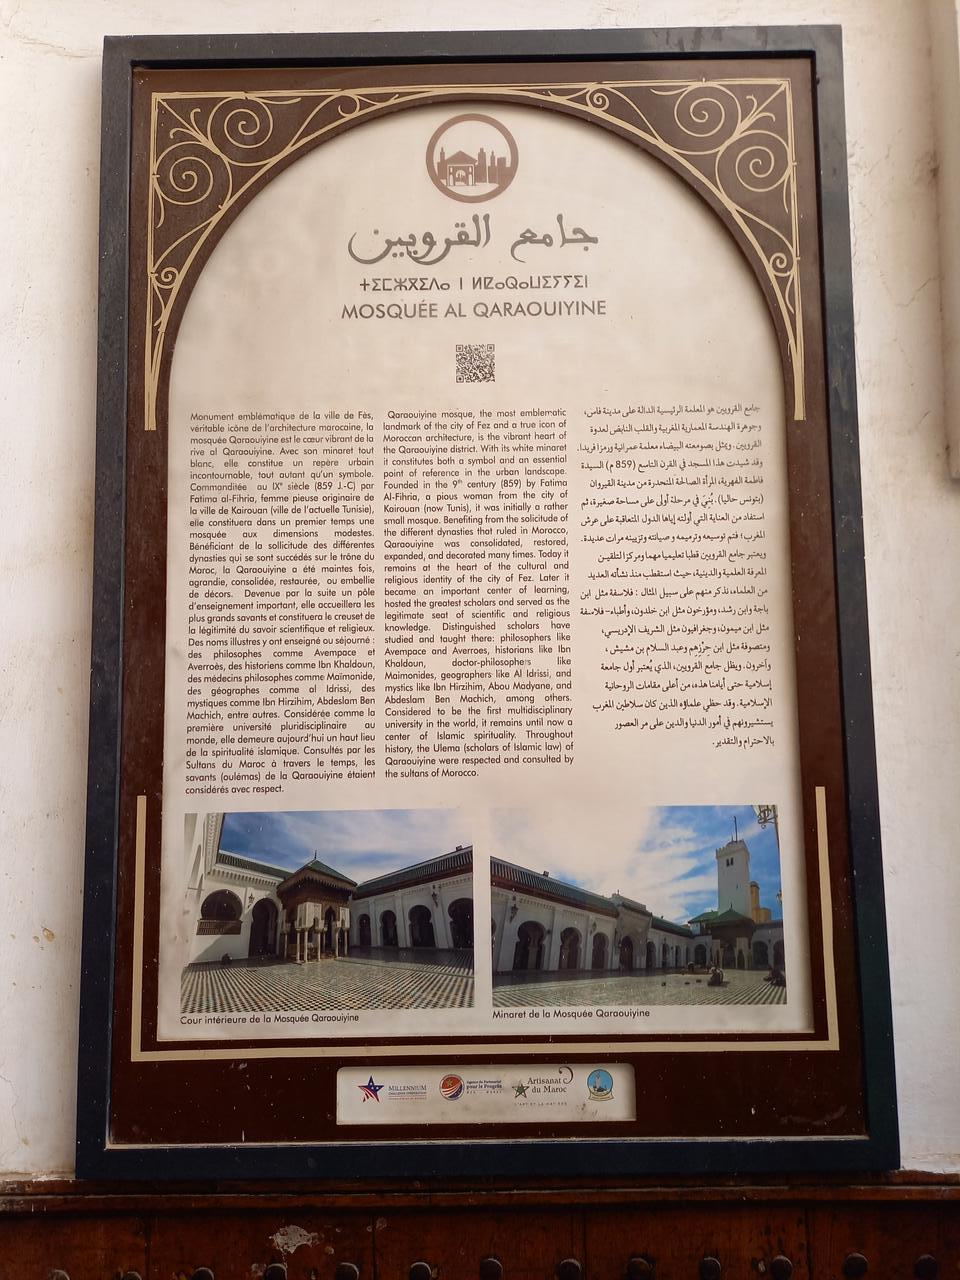 جامع القرويين
ⵜⵉⵎⵣⴳⵉⴷⴰ ⵏ ⵍⵇⴰⵕⴰⵡⵉⵢⵢⵉⵏ
MOSQUÉE AL QARAOUIYINE
Monument emblématique de la ville de Fès,
véritable icône de l'architecture marocaine, la
mosquée Qaraouiyine est le cœur vibrant de la
rive al Qaraouiyine. Avec son minaret tout
blanc, elle constitue un repère urbain
incontournable, tout autant qu'un symbole.
Commanditée au IXe siècle (859 J.-C) par
Fatima al-Fihria, femme pieuse originaire de
la ville de Kairouan (ville de l'actuelle Tunisie),
elle constituera dans un premier temps une
mosquée aux dimensions modestes.
Bénéficiant de la sollicitude des différentes
dynasties qui se sont succédés sur le trône du
Maroc, la Qaraouiyine a été maintes fois,
agrandie, consolidée, restaurée, ou embellie
de décors. Devenue par la suite un pôle
d'enseignement important, elle accueillera les
plus grands savants et constituera le creuset de
la légitimité du savoir scientifique et religieux.
Des noms illustres y ont enseigné ou séjourné :
des philosophes comme Avempace et
Averroès, des historiens comme Ibn Khaldoun,
des médecins philosophes comme Maïmonide,
des géographes comme al Idrissi, des
mystiques comme Ibn Hirzihim, Abdeslam Ben
Machich, entre autres. Considérée comme la
première université pluridisciplinaire au
monde, elle demeure aujourd'hui un haut lieu
de la spiritualité islamique. Consultés par les
Sultans du Maroc à travers le temps, les
savants (oulémas) de la Qaraouiyine étaient
considérés avec respect.
Qaraouiyine mosque, the most emblematic
landmark of the city of Fez and a true icon of
Moroccan architecture, is the vibrant heart of
the Qaraouiyine district. With its white minaret
it constitutes both a symbol and an essential
point of reference in the urban landscape.
Founded in the 9th century (859) by Fatima
Al-Fihria, a pious woman from the city of
Kairouan (now Tunis), it was initially a rather
small mosque. Benefiting from the solicitude of
the different dynasties that ruled in Morocco,
Qaraouiyine was consolidated, restored,
expanded, and decorated many times. Today it
remains at the heart of the cultural and
religious identity of the city of Fez. Later it
became an important center of learning,
hosted the greatest scholars and served as the
legitimate seat of scientific and religious
knowledge. Distinguished scholars have
studied and taught there: philosophers like
Avempace and Averroes, historians like Ibn
Khaldoun, doctor-philosophers like
Maimonides, geographers like Al Idrissi, and
mystics like Ibn Hirzihim, Abou Madyane, and
Abdeslam Ben Machich, among others.
Considered to be the first multidisciplinary
university in the world, it remains until now a
center of Islamic spirituality. Throughout
history, the Ulema (scholars of Islamic law) of
Qaraouiyine were respected and consulted by
the sultans of Morocco.
جامع القرويين هو المعلمة الرئيسية الدالة على مدينة فاس،
وجوهرة الهندسة المعمارية المغربية والقلب النابض لعدوة
القرويين. ويمثل بصومعته البيضاء معلمة عمرانية ورمزا فريدا.
وقد شيدت هذا المسجد في القرن التاسع (859 م) السيدة
فاطمة الفهرية، المرأة الصالحة المنحدرة من مدينة القيروان
(بتونس حاليا). بُنيَ في مرحلة أولى على مساحة صغيرة، ثم
استفاد من العناية التي أولته إياها الدول المتعاقبة على عرش
المغرب؛ فتم توسيعه وترميمه و صيانته وتزيينه مرات عديدة.
ويعتبر جامع القرويين قطبا تعليميا مهما ومركزا لتلقين
المعرفة العلمية والدينية، حيث استقطب منذ نشأته العديد
من العلماء، نذكر منهم على سبيل المثال : فلاسفة مثل ابن
باجة وابن رشد، ومؤرخون مثل ابن خلدون، وأطباء-فلاسفة
مثل ابن ميمون، وجغرافيون مثل الشريف الإدريسي،
ومتصوفة مثل ابن حِرْزِهِم وعبد السلام بن مشيش ،
وآخرون. ويظل جامع القرويين، الذي يُعتبر أول جامعة
إسلامية حتى أيامنا هذه، من أعلى مقامات الروحانية
الإسلامية. وقد حظي علماؤه الذين كان سلاطين المغرب
يستشيرونهم في أمور الدنيا والدين على مر العصور
بالاحترام والتقدير.
Cour intérieure de la Mosquée Qaraouiyine
Minaret de la Mosquée Qaraouiyine
MILLENNIUM
CHALLENGE CORPORATION
Agence du Partenariat
pour le Progrès
MCA - MAROC
Artisanat
du Maroc
L'ART ET LA MATIÈRE